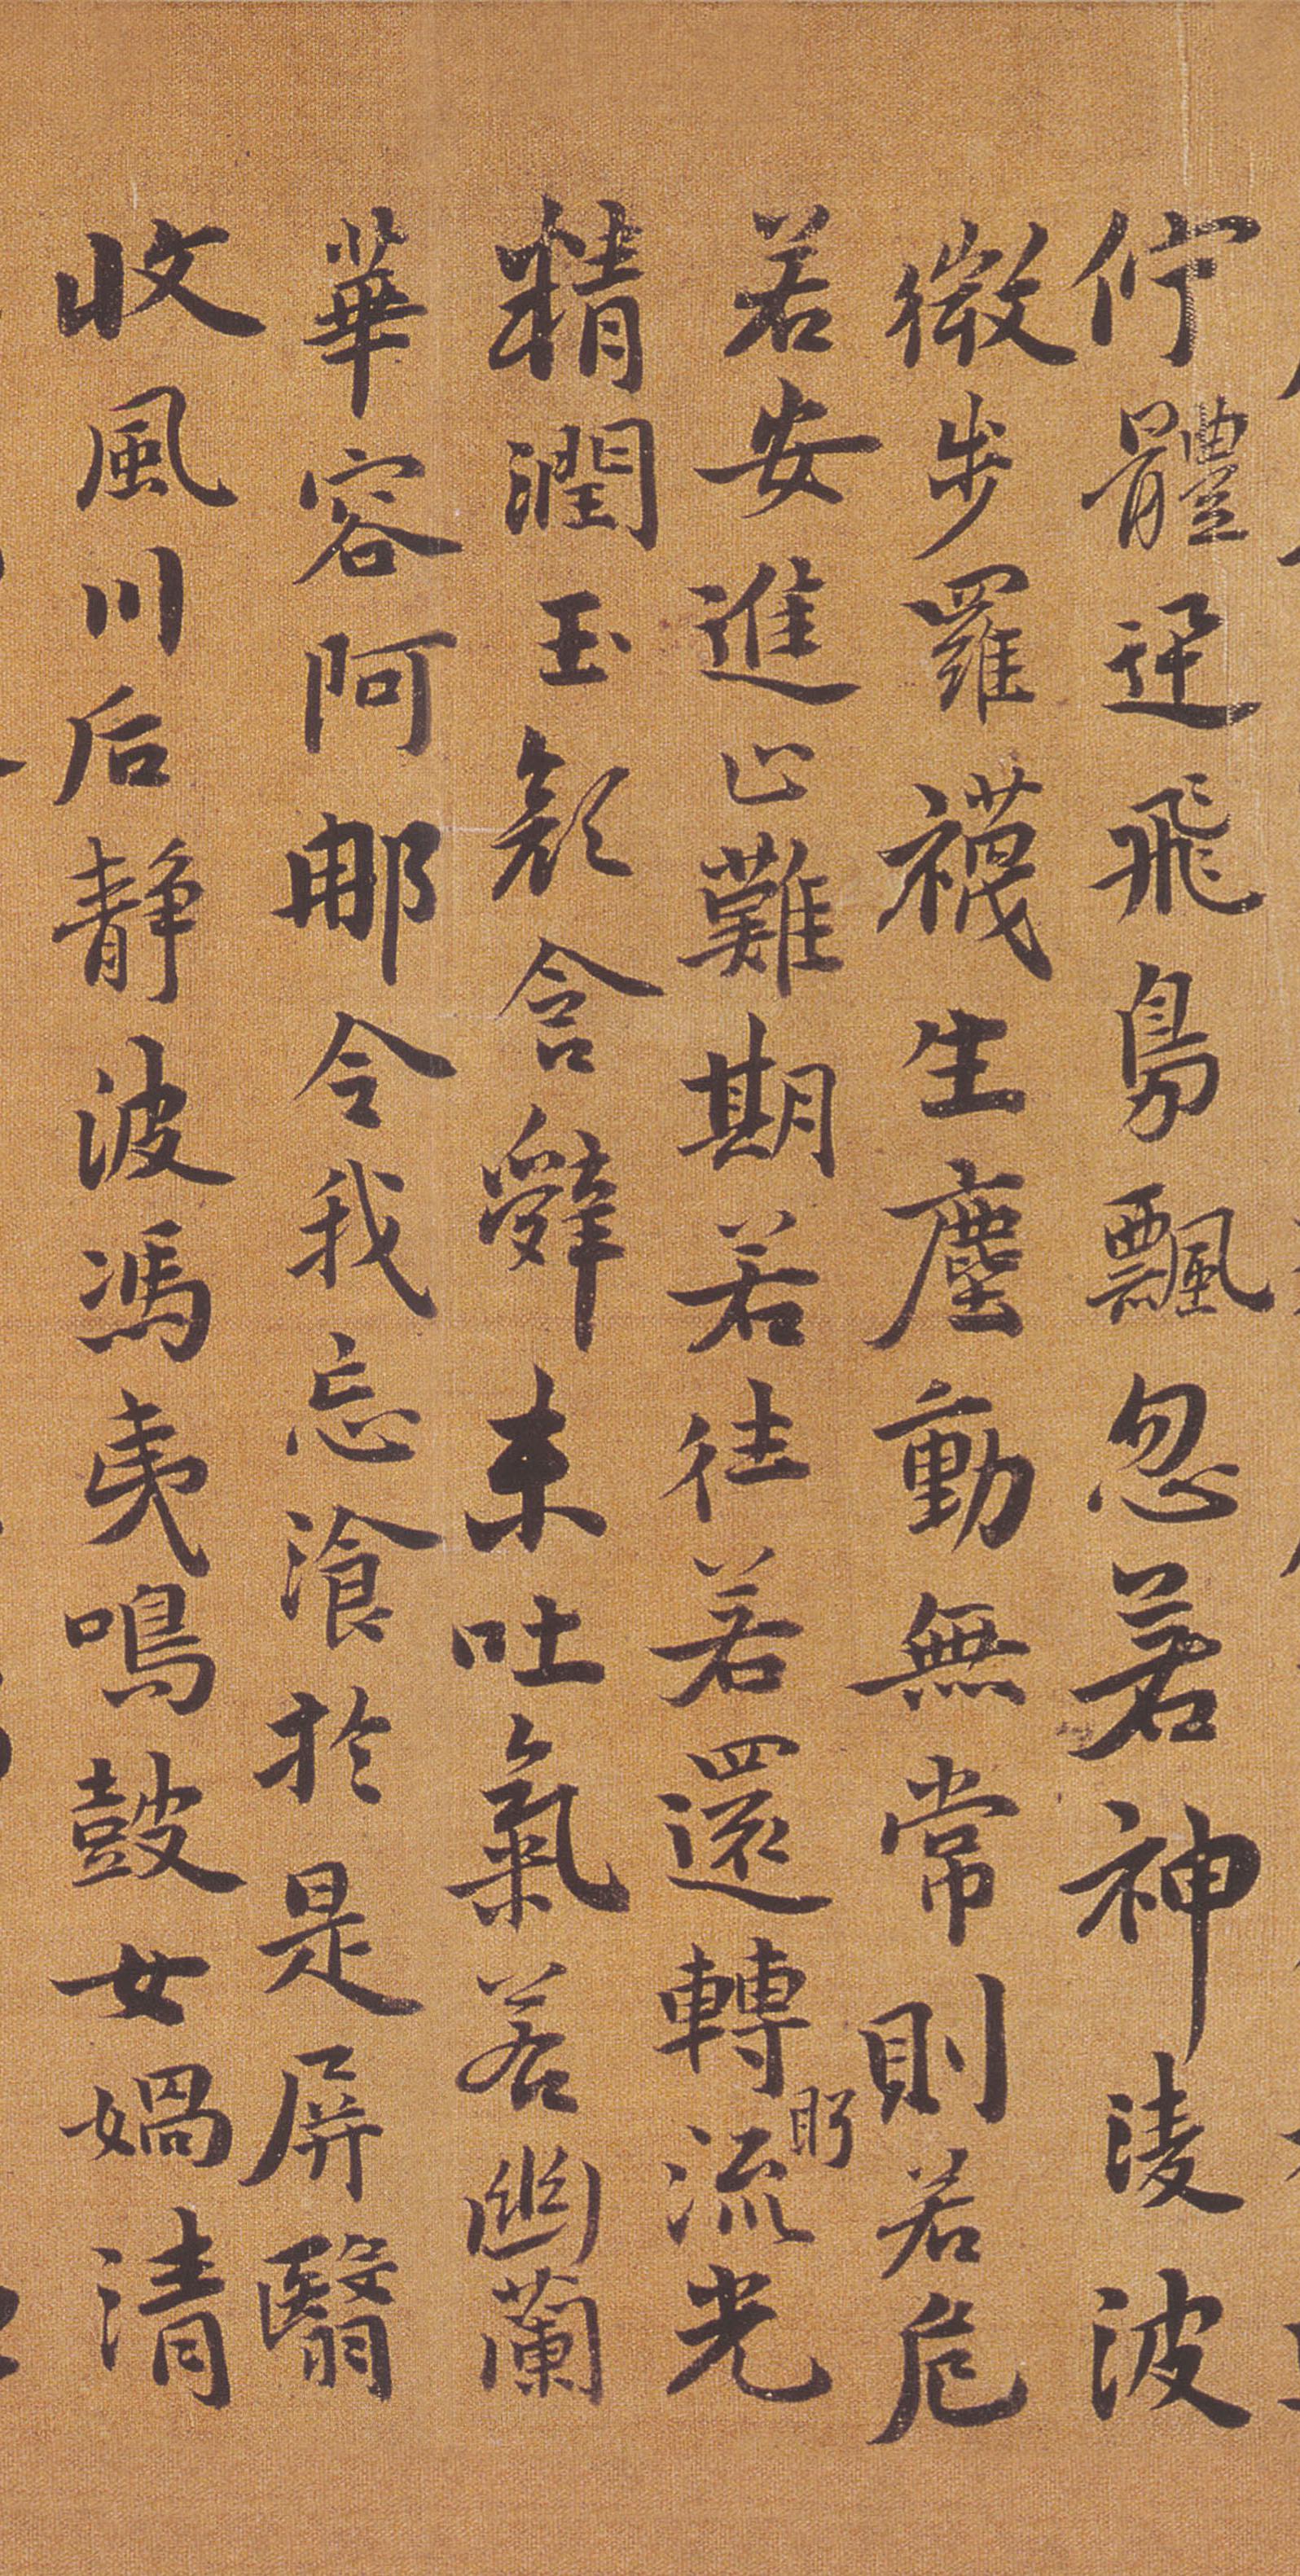 佇體迅飛鳬飄忽若神淩波
微步羅襪生塵動無常則若危
若安進止難期若往若還轉眄流光
精潤玉顏含辭未吐氣若幽蘭
華容阿那令我忘湌於是屏翳
收風川后静波馮夷鳴鼓女媧清